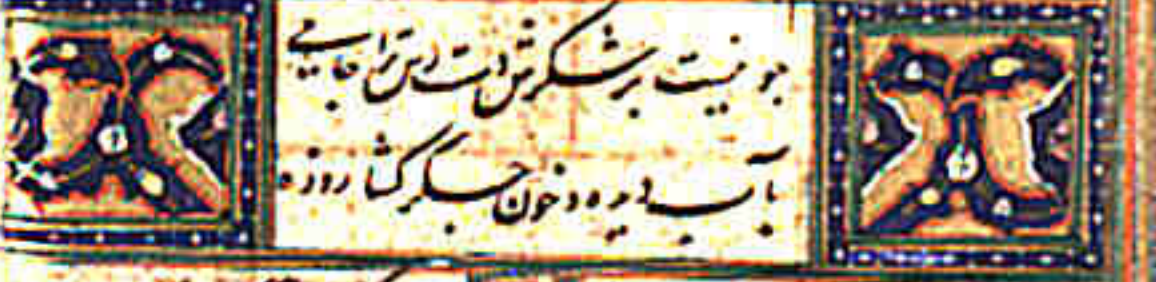 چو نیست بر شکرش دست‌رس ترا جامی
بآب دیده و خون جگر گشا روزه